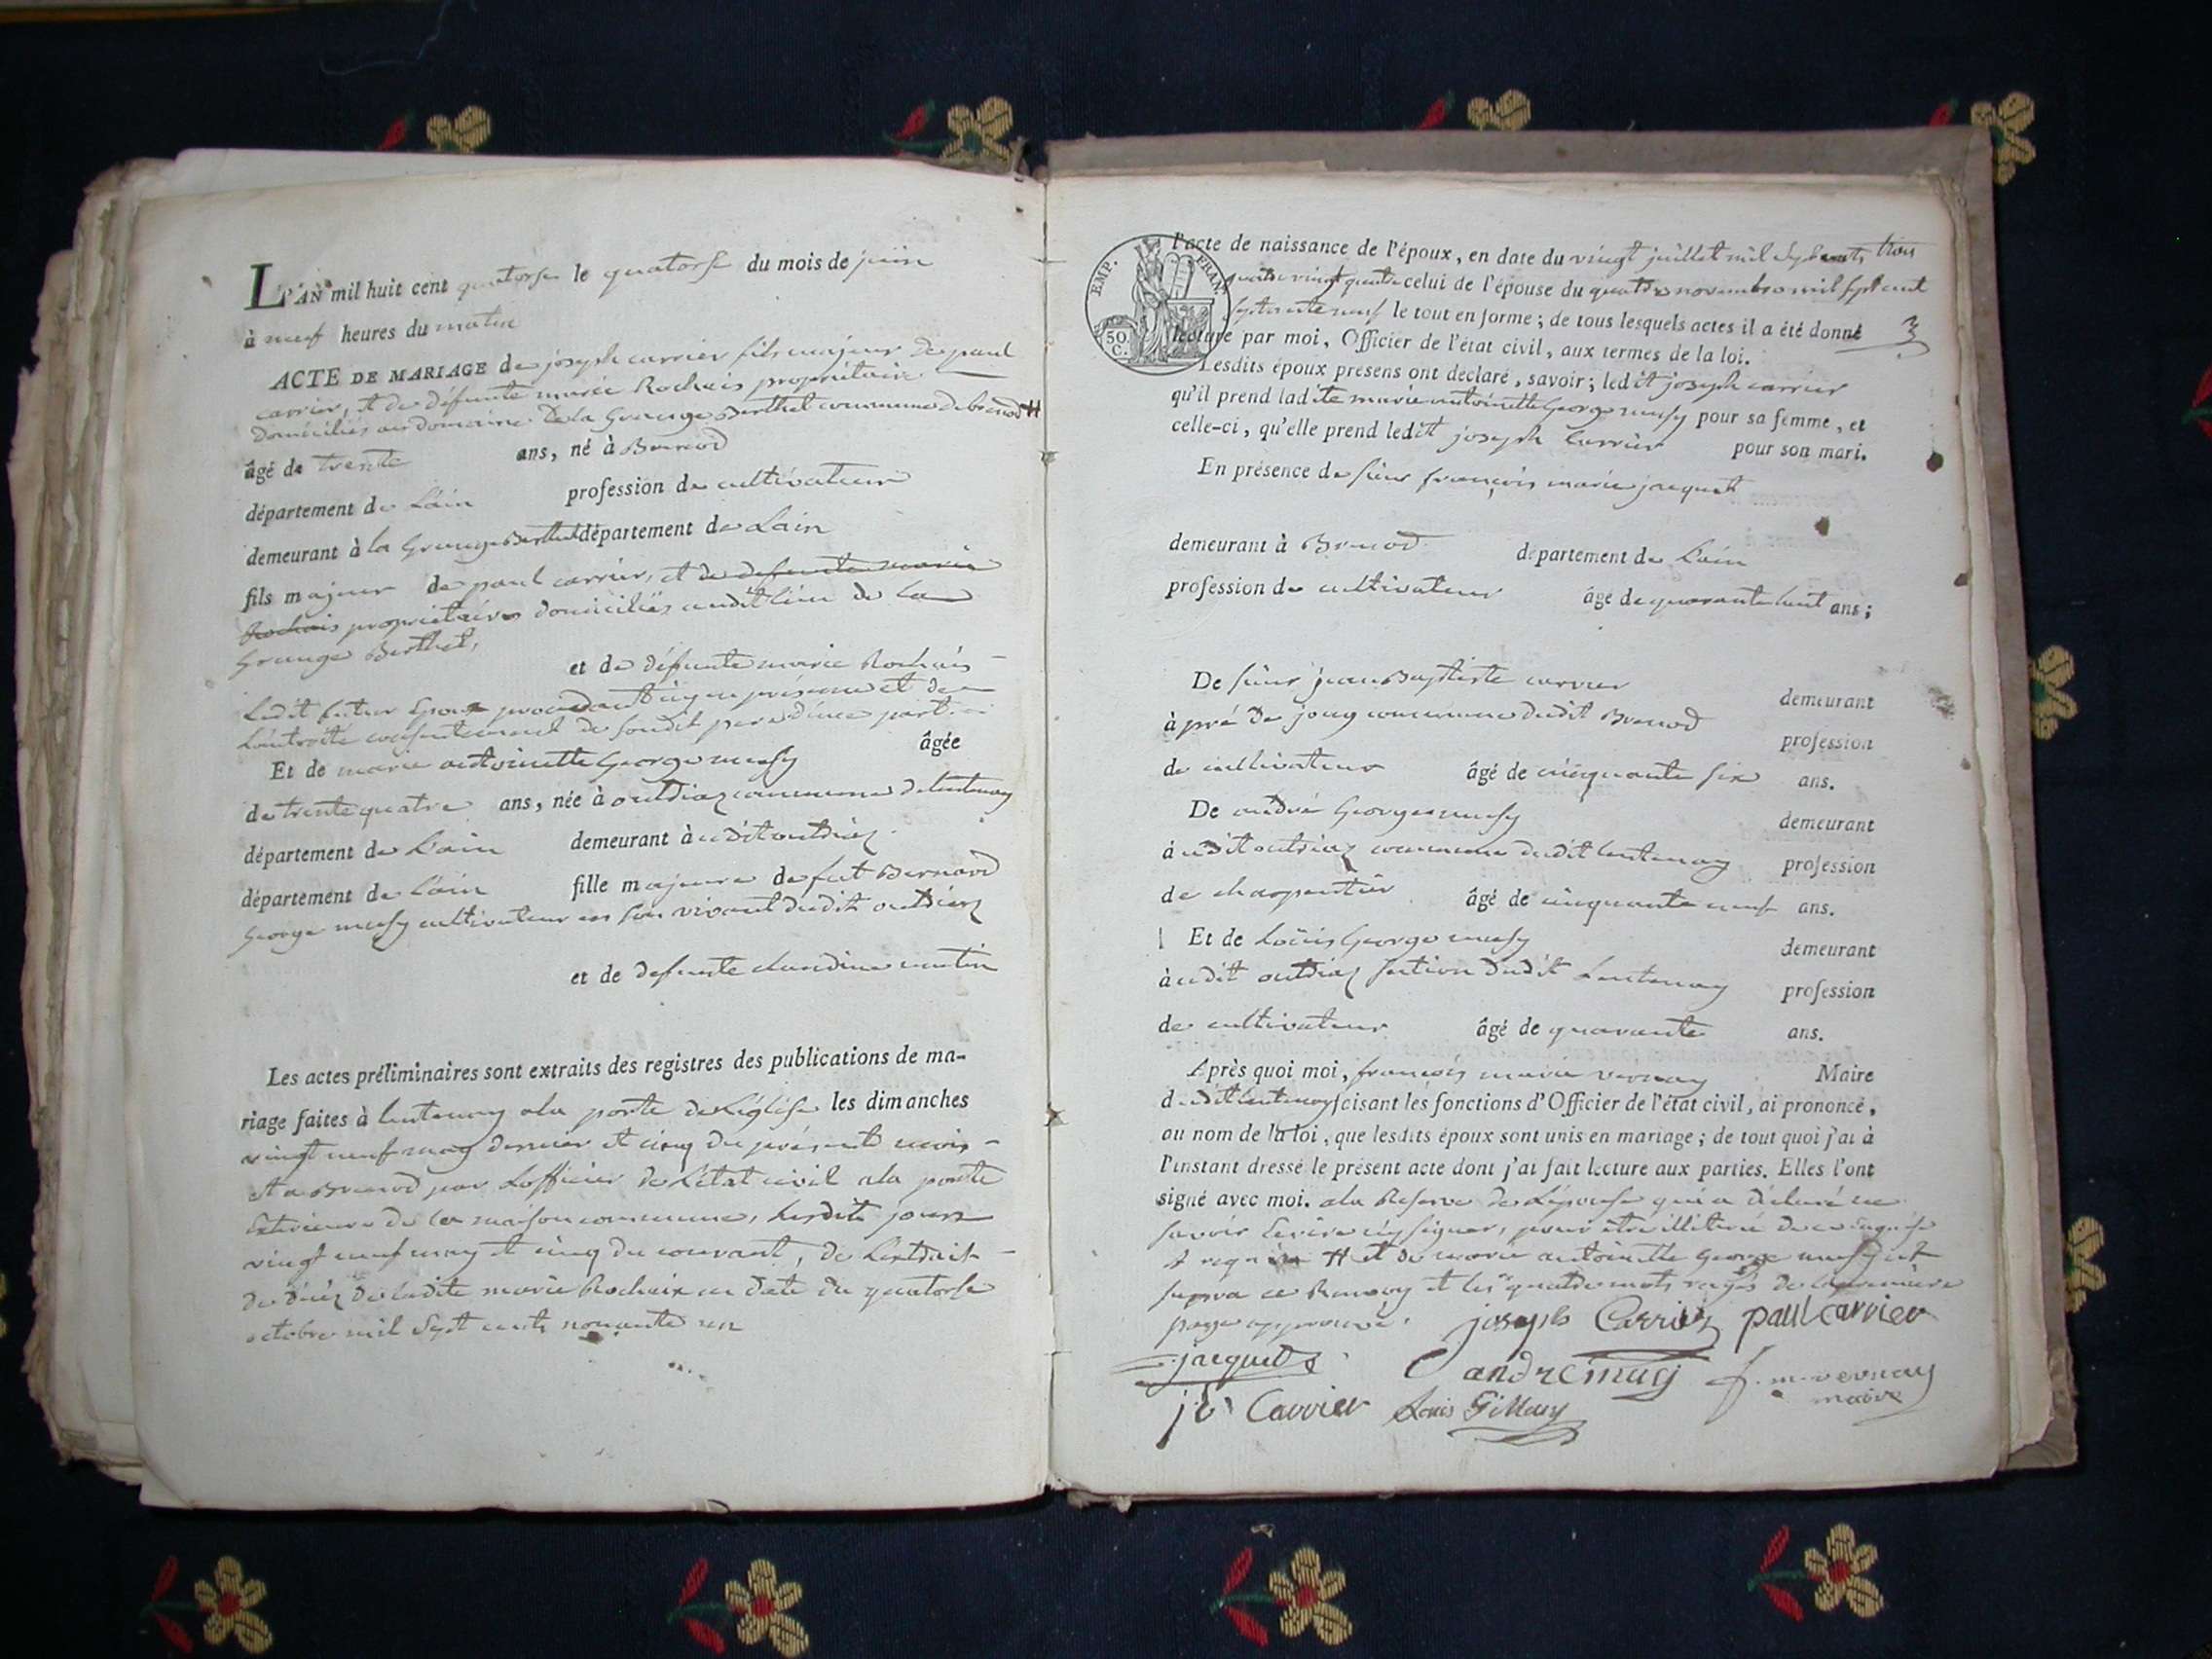 L'AN mil huit cent quatorse le quatorse du mois de juin
à neuf heures du matin
ACTE DE MARIAGE de joseph carrier fils majeur de paul
carrier, et de défunte marie Rochais propriétaire
domiciliés au domaine de la Grange Berthet commune de brenod #
âgé de trente ans, né à Brenod
département de L'ain profession de cultivateur
demeurant à la Grange Berthet département de Lain
fils majeur de paul carrier, et de defunte marie
Rochais propriétaires domiciliés audit lieu de la
Grange Berthet,
et de défunte marie Rochais
Ledit futur Epoux procedant icy en présence et de
consentement de sondit pere d'une part
Et de marie antoinette George musy âgée
de trente quatre ans, née à outriaz commune de lentenay
département de L'ain demeurant à udit outriaz
département de L'ain fille majeure de fut Bernard
George musy cultivateur en son vivant dudit outriaz
et de defunte claudine
Les actes préliminaires sont extraits des registres des publications de ma-
riage faites à lentenay a la porte de L'église les dimanches
vingt neuf may dernier et cinq du présent mois
et a Brenod par L'officier de L'état civil a la porte
Exterieure de la maison commune, lesdits jours
vingt neuf may et cinq du courant, de L'extrait
de décéz de ladite marie Rochaix en date du quatorse
octobre mil sept cents nonante un
EMP. FRAN.
50 C.
l'acte de naissance de l'époux, en date du vingt juillet mil sept cents trois
quatre vingt quatre celui de l'épouse du quatre novembre mil sept cent
septante neuf le tout en forme ; de tous lesquels actes il a été donné
lecture par moi, Officier de l'état civil, aux termes de la loi.
Lesdits époux présens ont déclaré, savoir ; ledit joseph carrier
qu'il prend ladite marie antoinette George musy pour sa femme, et
celle-ci, qu'elle prend ledit joseph Carrier pour son mari.
En présence de sieur françois marie jacquet
demeurant à Brenod département de L'ain
profession de cultivateur âgé de quarante huit ans ;
De sieur jean Baptiste carrier demeurant
à pré de joug commune dudit Brenod profession
de cultivateur âgé de cinquante six ans.
De andré George musy demeurant
à udit outriaz commune dudit lentenay profession
de charpentier âgé de cinquante neuf ans.
Et de Loüis George musy demeurant
à udit outriaz section dudit Lentenay profession
de cultivateur âgé de quarante ans.
Après quoi moi, françois marie vernay Maire
dudit lentenay faisant les fonctions d'Officier de l'état civil, ai prononcé,
au nom de la loi, que lesdits époux sont unis en mariage ; de tout quoi j'ai à
l'instant dressé le présent acte dont j'ai fait lecture aux parties. Elles l'ont
signé avec moi. a la Reserve de L'épouse qui a déclaré ne
savoir Ecrire ny signer, pour être illitéré de ce enquise
et requise # et de marie antoinette George musy
supra ce Renvoy et les quatre mots rayés de la premiere
page approuvé.
joseph Carrier paul carrier
jacquet andre musy f. m. vernay
maire
jb Carrier Louis G Musy